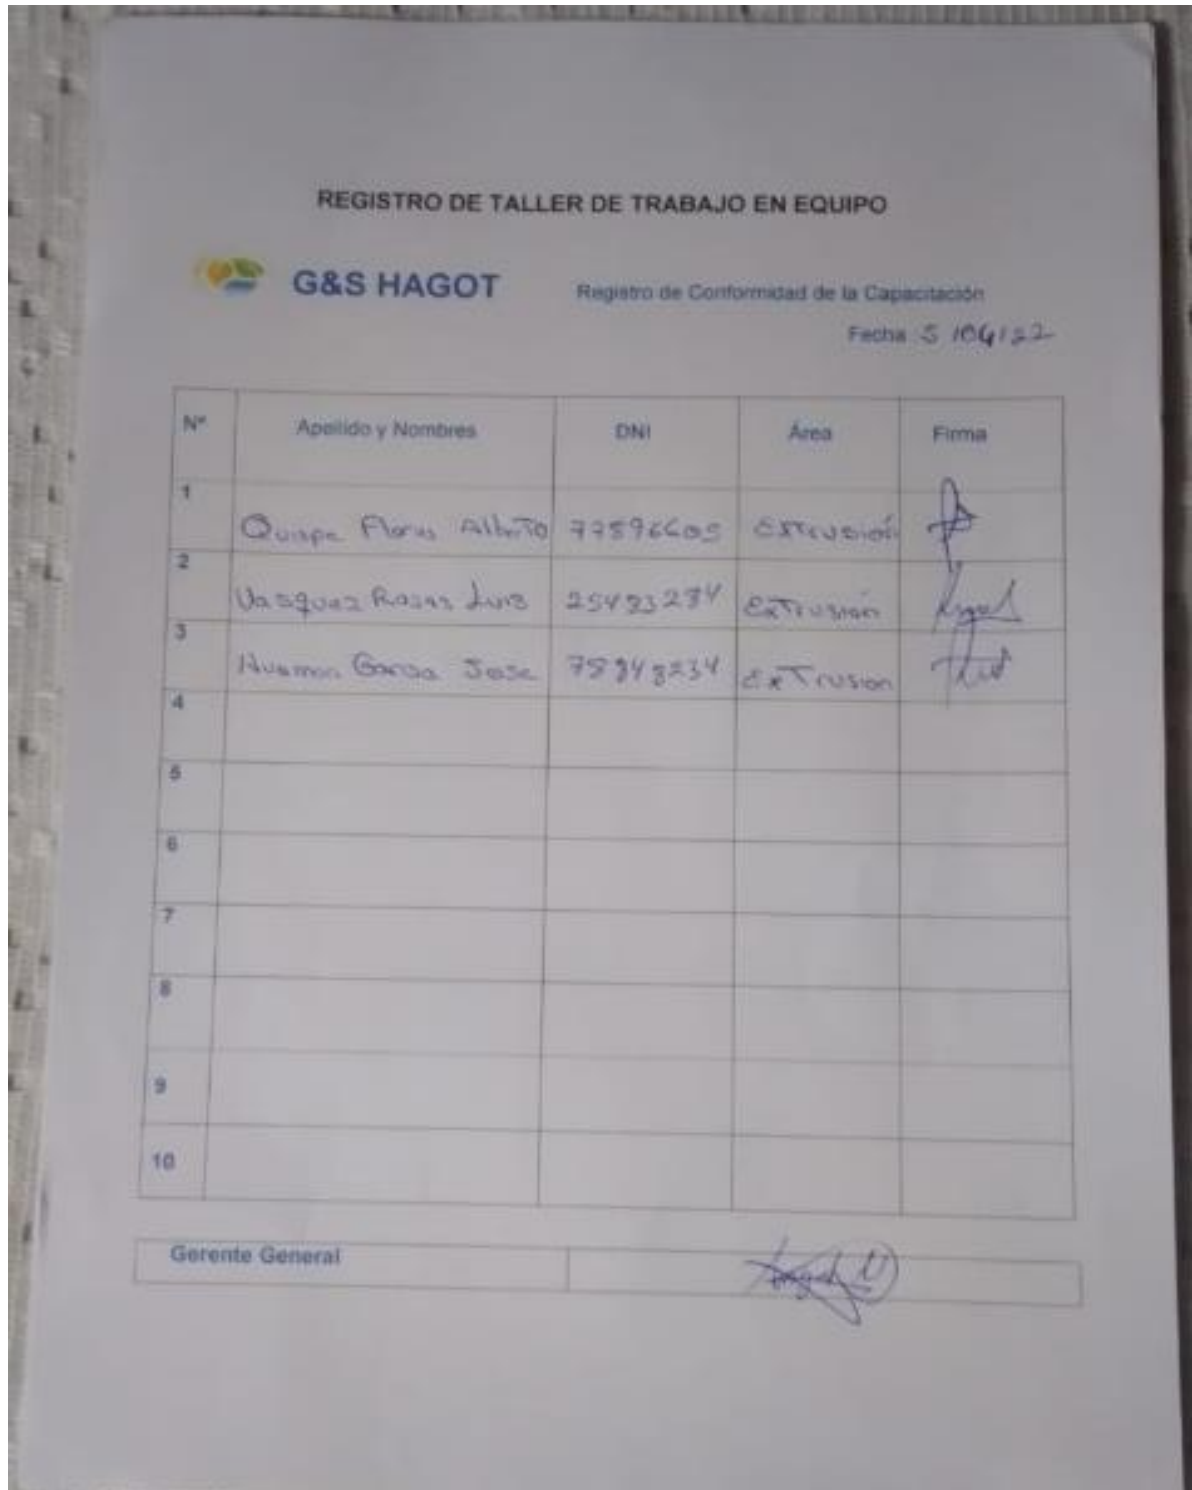 REGISTRO DE TALLER DE TRABAJO EN EQUIPO
G&S HAGOT
Registro de Conformidad de la Capacitación
Fecha 5 /04/22
Nº Apellido y Nombres DNI Área Firma
1 Quispe Flores Alberto 77596605 Extrusión
2 Vasquez Rosas Luis Extrusión
3 Huaman Garcia Jose Extrusion
4
5
6
7
8
9
10
Gerente General